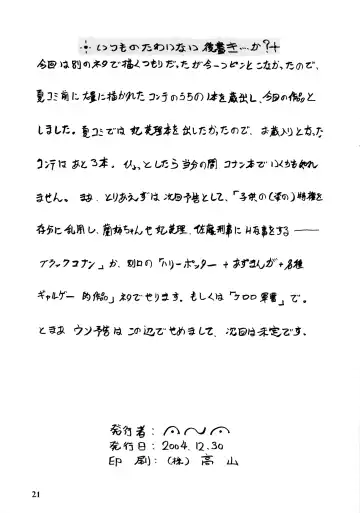 いつものたわいない後書き…か？
今回は別のネタで描くつもりだったが今一つピンとこなかったので、
夏コミ前に大量に描かれたコンテのうちの1本を蔵出し、今回の作品と
しました。夏コミでは妃英理本を出したかったので、お蔵入りとなった
コンテはあと3本。ひょっとしたら当分の間コナン本でいくかもしれ
ません。まぁ、とりあえずは次回予告として、「子供の(姿の)特権を
存分に乱用し、蘭姉ちゃんや妃英理、佐藤刑事にH有事をする——
ブラックコナン」か、別口の「ハリーポッター+あずまんが+各種
ギャルゲー的作品」ネタでやります。もしくは「ケロロ軍曹」で。
とまぁウソ予告はこの辺でやめまして、次回は未定です。
発行者：
発行日：2004.12.30
印 刷：(株) 高 山
21